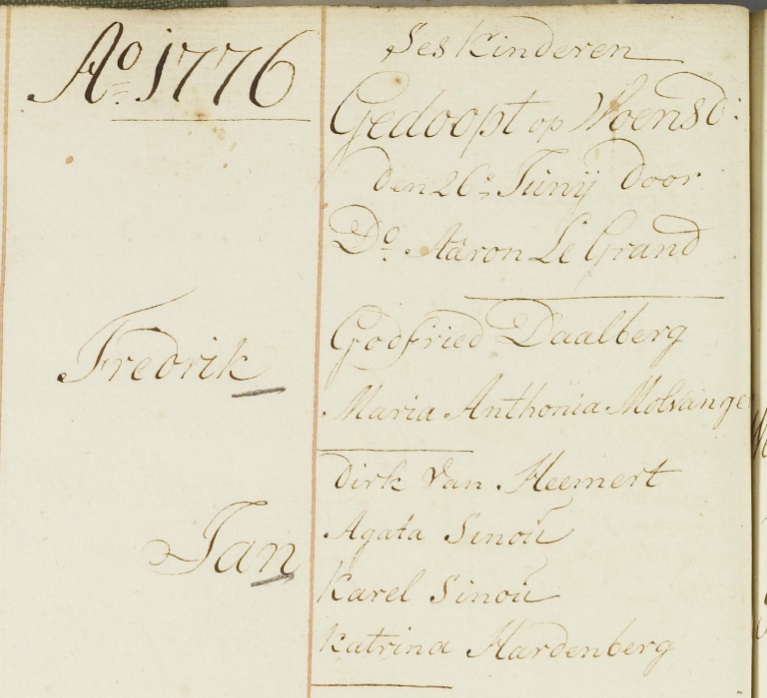 Ao. 1776
Ses Kinderen
Gedoopt op Woensd:
den 26e Junij door
Do. Aaron Le Grand
Fredrik
Godfried Daalberg
Maria Anthonia Molvange
Jan
Dirk Van Heemert
Agata Sinoú
Karel Sinoú
Katrina Hardenberg